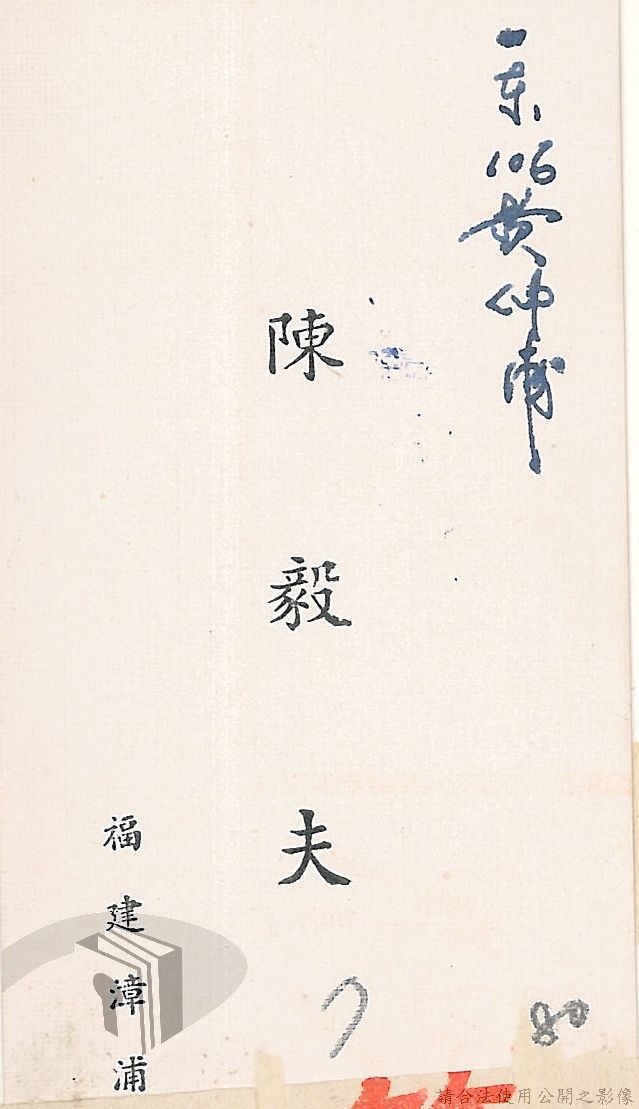 一東106黄仲甫
陳毅夫
福建漳浦
80
請合法使用公開之影像